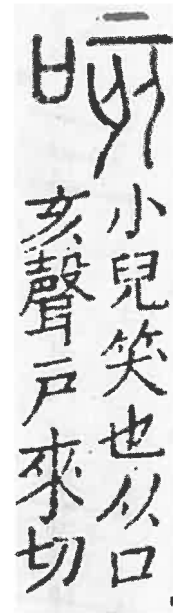 咳小兒笑也从口
亥聲戶來切